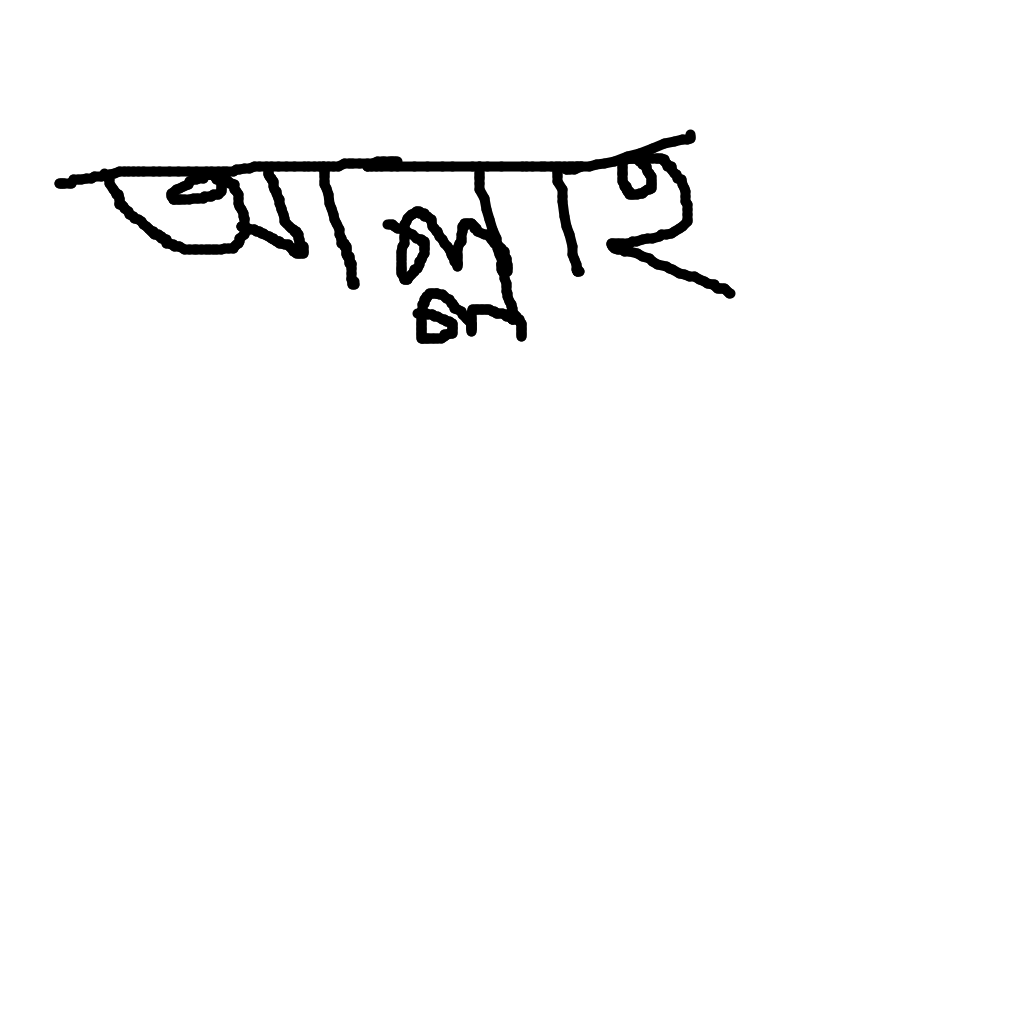 আল্লাহ